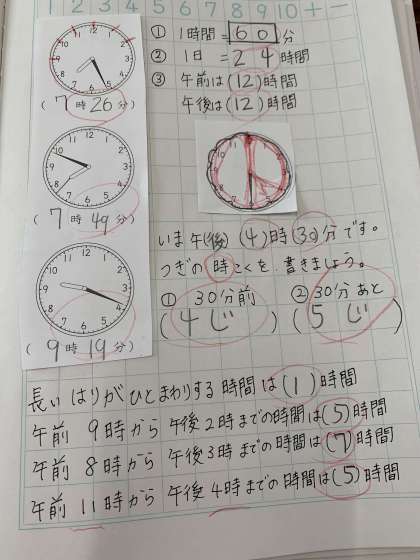 1 2 3 4 5 6 7 8 9 10 + −
(7時26分)
(7時49分)
(9時19分)
① 1時間=60分
② 1日=24時間
③ 午前は(12)時間
午後は(12)時間
いま午(後)(4)時(30)分です。
つぎの時こくを、書きましょう。
① 30分前
(4じ)
② 30分あと
(5じ)
長いはりがひとまわりする時間は(1)時間
午前9時から午後2時までの時間は(5)時間
午前8時から午後3時までの時間は(7)時間
午前11時から午後4時までの時間は(5)時間